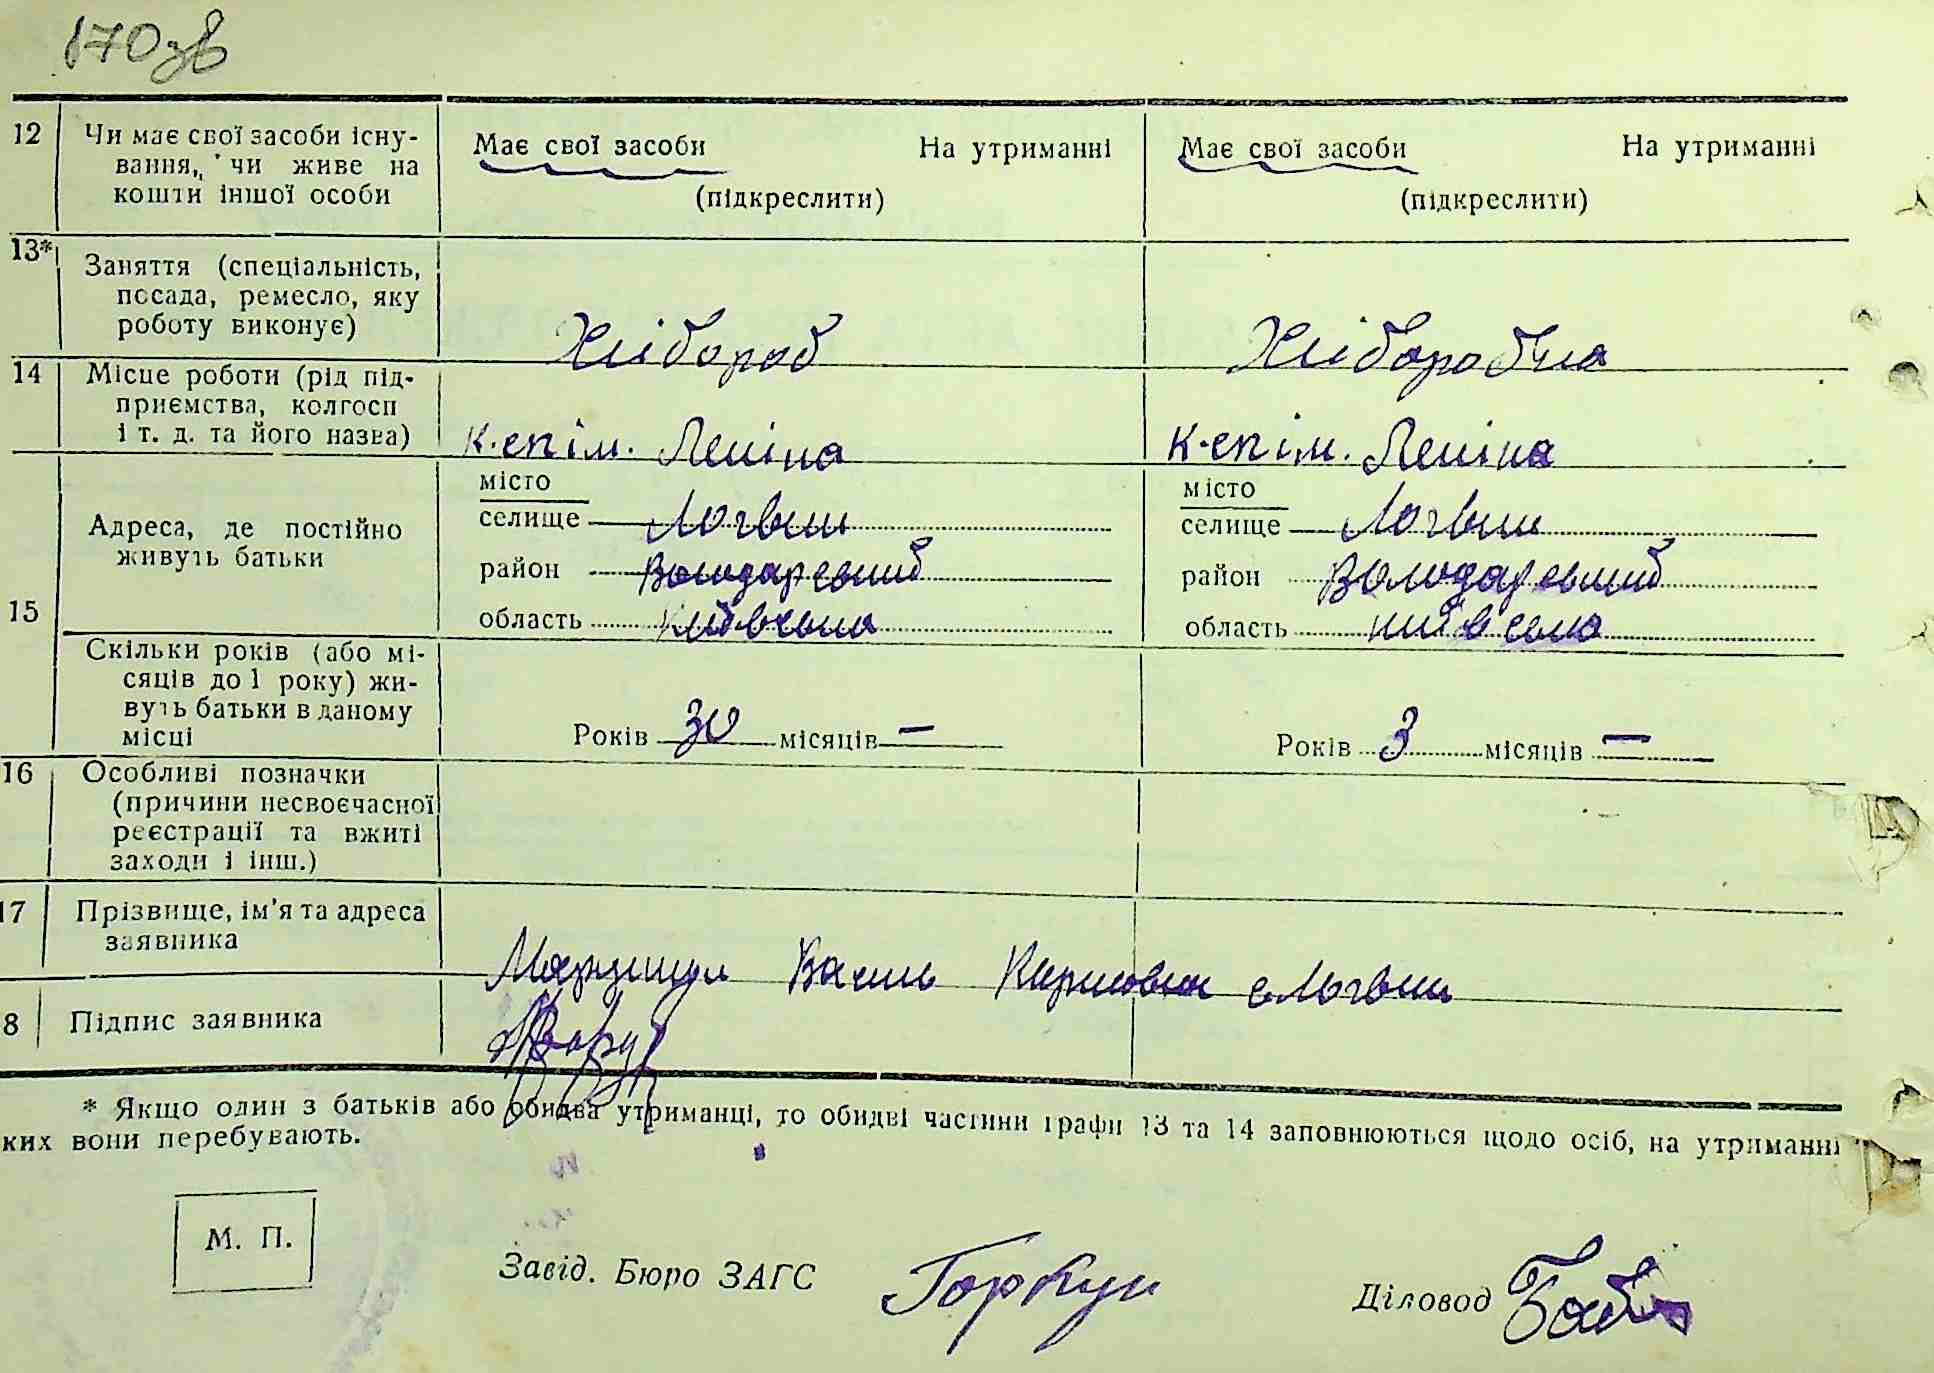 170 зв
12 Чи має свої засоби існу-
вання, чи живе на
кошти іншої особи
Має свої засоби На утриманні
(підкреслити)
Має свої засоби На утриманні
(підкреслити)
13* Заняття (спеціальність,
посада, ремесло, яку
роботу виконує)
Хлібороб
Хліборобка
14 Місце роботи (рід під-
приємства, колгосп
і т. д. та його назва)
к-сп ім. Леніна
к-сп ім. Леніна
15
Адреса, де постійно
живуть батьки
місто
селище Логвин
район Володарський
область Київська
місто
селище Логвин
район Володарський
область Київська
Скільки років (або мі-
сяців до 1 року) жи-
вуть батьки в даному
місці
Років 30 місяців —
Років 3 місяців —
16 Особливі позначки
(причини несвоєчасної
реєстрації та вжиті
заходи і інш.)
17 Прізвище, ім'я та адреса
заявника
Василь Карпович с Логвин
8 Підпис заявника
* Якщо один з батьків або обидва утриманці, то обидві частини графи 13 та 14 заповнюються щодо осіб, на утриманні
ких вони перебувають.
М. П.
Завід. Бюро ЗАГС
Діловод